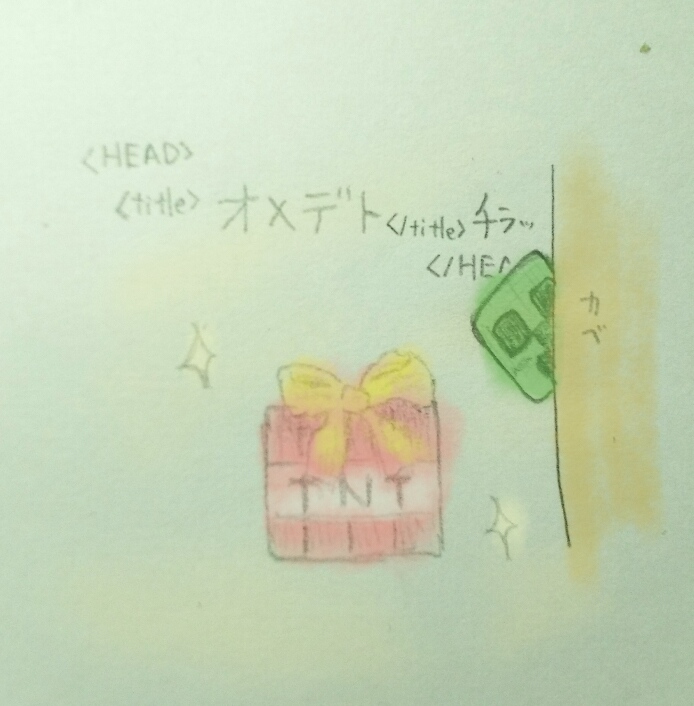 <HEAD>
<title>オメデト</title>チラッ
</HEA
カベ
TNT